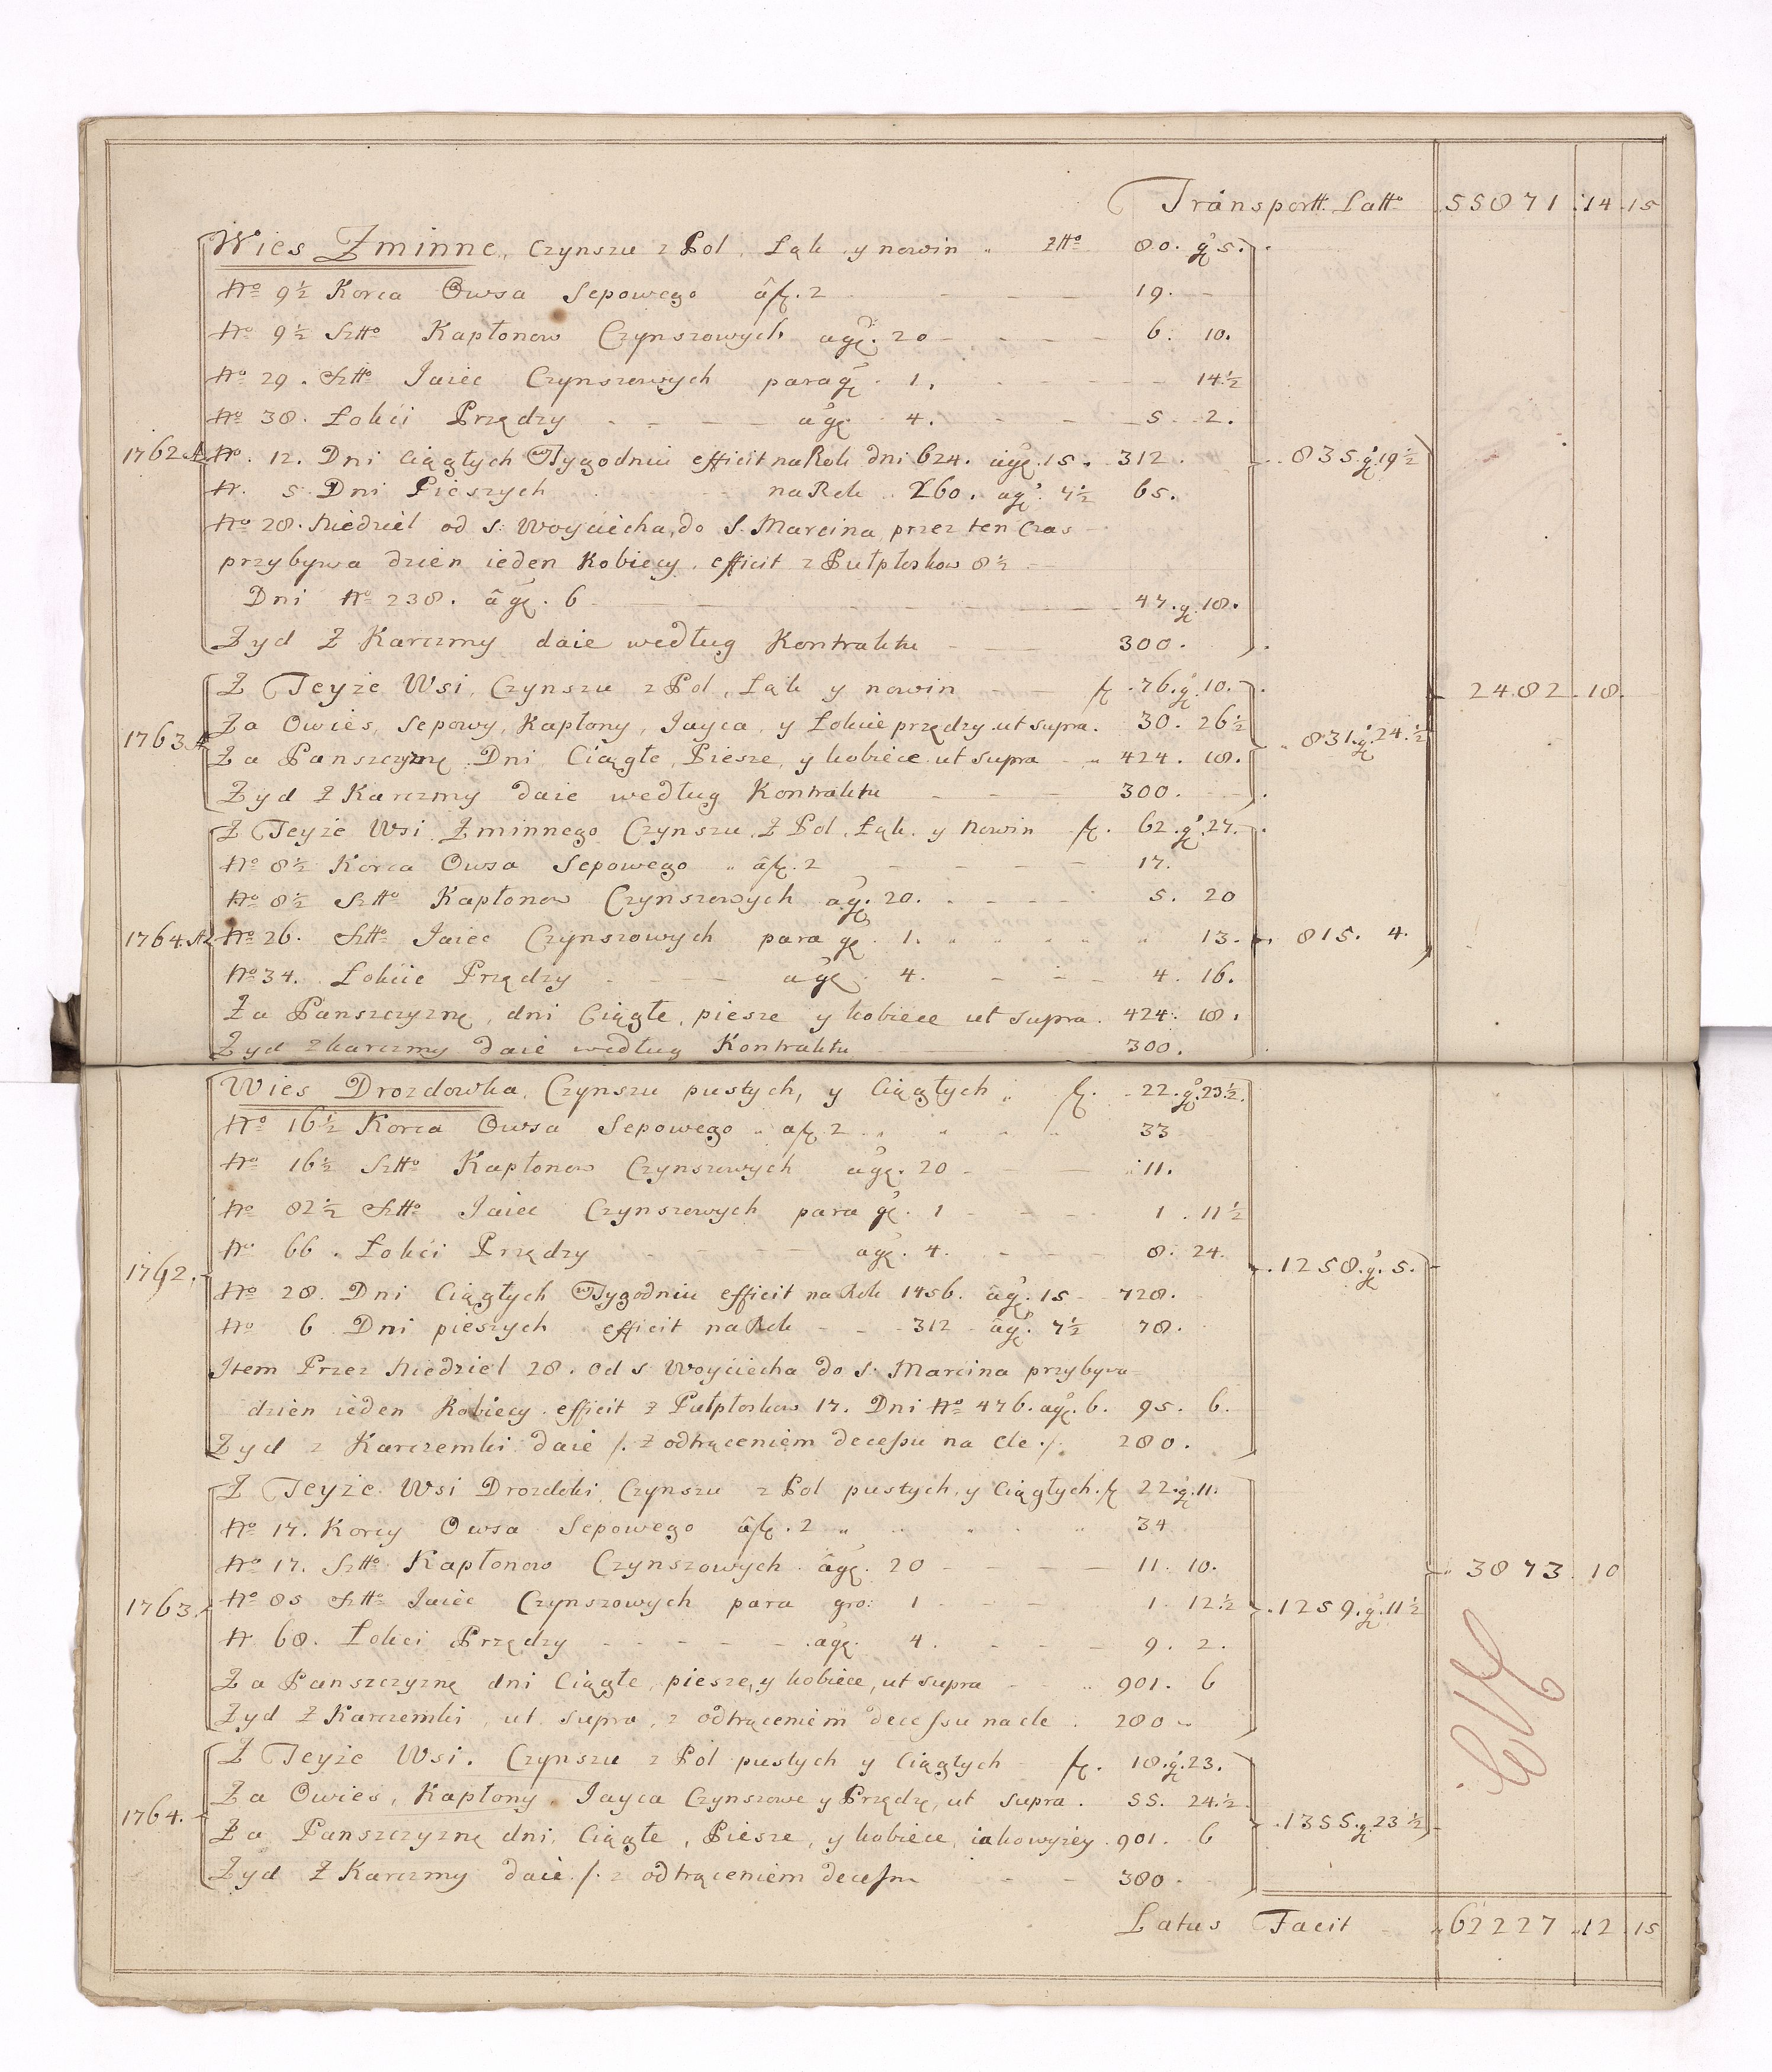 Transportt. Latto 55871 . 14 . 15
Wies Zminne, Czynszu z Pol, Łąk y nowin złło 80. gr 5.
No 9½ Korca Owsa Sepowego a fl. 2 19.
No 9½ Sztto Kapłonow Czynszowych a gr. 20 6. 10.
No 29. Sztto Jaiec Czynszowych para gr. 1. 14½
No 38. Łokci Przędzy a gr. 4. 5. 2.
1762 No. 12. Dni Ciągłych w Tygodniu efficit na Rok dni 624. a gr. 15. 312. 835. gr. 19½
N. 5 Dni Pieszych na Rok 260. a gr. 7½ 65.
No 28. Niedziel od S. Woyciecha, do S. Marcina przez ten Czas
przybywa dzien ieden kobiecy. efficit z Pułpłoskow 8½
Dni No 238. a gr. 6 47. gr. 18.
Zyd Z Karczmy daie według Kontraktu 300.
Z Teyże Wsi, Czynszu z Pol, Łąk y nowin fl. 76. gr. 10. 2482. 18.
1763 Za Owies, Sepowy, Kapłony, Jayca, y Łokcie przędzy ut supra. 30. 26½ 831. gr. 24½
Za Panszczyznę Dni Ciągłe, Piesze, y kobiece ut supra 424. 18.
Zyd Z Karczmy daie według Kontraktu 300.
Z Teyże Wsi Zminnego Czynszu, Z Pol, Łąk. y Nowin fl. 62. gr. 27.
No 8½ Korca Owsa Sepowego a fl. 2 17.
No 8½ Sztto Kapłonow Czynszowych a gr. 20. 5. 20
1764 No 26. Sztto Jaiec Czynszowych para gr. 1. 13. 815. 4.
No 34. Łokcie Przędzy a gr. 4. 4. 16.
Za Panszczyznę, dni Ciągłe, piesze y kobiece ut supra. 424. 18.
Zyd z karczmy daie według Kontraktu 300.
Wies Drozdowka, Czynszu pustych, y Ciągłych fl. 22. gr. 23½.
No 16½ Korca Owsa Sepowego a fl. 2 33
No 16½ Sztto Kapłonow Czynszowych a gr. 20 11.
No 82½ Sztto Jaiec Czynszowych para gr. 1 1. 11½
No 66. Łokci Przędzy a gr. 4. 8. 24.
1762. 1258. gr. 5.
No 28. Dni Ciągłych w Tygodniu efficit na Rok 1456. a gr. 15 728.
No 6 Dni pieszych efficit na Rok 312 a gr. 7½ 78.
Item Przez Niedziel 28. od S Woyciecha do S. Marcina przybywa
dzien ieden kobiecy. efficit z Pułpłoskow 17. Dni No 476. a gr. 6. 95. 6.
Zyd z Karczemki daie /. z odtrąceniem decessu na cle ./. 280.
Z Teyże Wsi Drozdki Czynszu z Pol pustych, y Ciągłych. fl. 22. gr. 11.
No 17. Korcy Owsa Sepowego a fl. 2 34
No 17. Sztto Kapłonow Czynszowych a gr. 20 11. 10. 3873. 10
1763. No 85 Sztto Jaiec Czynszowych para gro: 1 1. 12½ 1259. gr. 11½
N. 68. Łokci Przędzy a gr. 4. 9. 2.
Za Panszczyznę dni Ciągłe, piesze, y kobiece, ut supra 901. 6
Zyd Z Karczemki, ut supra, z odtrąceniem decessu na cle 280
Z Teyże Wsi. Czynszu z Pol pustych y Ciągłych fl. 18. gr. 23.
1764. Za Owies, Kapłony Jayca Czynszowe y Przędzę, ut supra. 55. 24½ 1355. gr. 23½
Za Panszczyznę dni, Ciągłe, Piesze, y kobiece, iakowyżey 901. 6
Zyd Z Karczmy daie /. z odtrąceniem decessu 380.
Latus Facit 62227 . 12 . 15